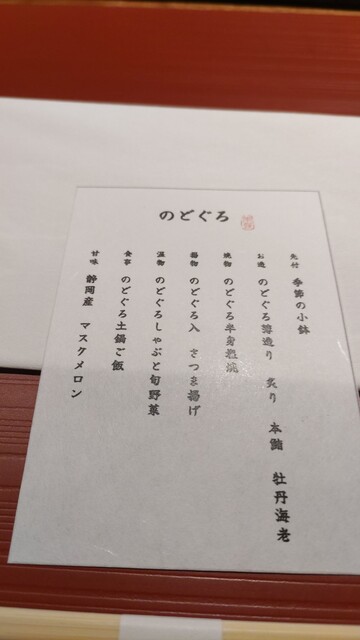 のどぐろ
先付 季節の小鉢
お造 のどぐろ薄造り 炙り 本鮪 牡丹海老
焼物 のどぐろ半身塩焼
揚物 のどぐろ入 さつま揚げ
温物 のどぐろしゃぶと旬野菜
食事 のどぐろ土鍋ご飯
甘味 静岡産 マスクメロン